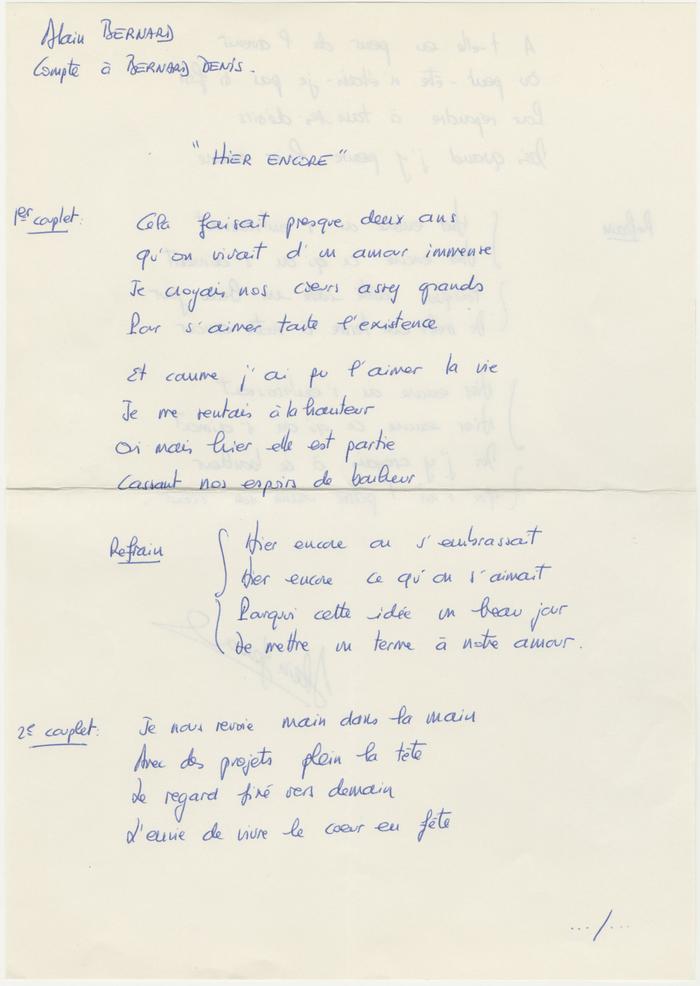 Alain BERNARD
Compte à BERNARD DENIS.
"HIER ENCORE"
1er couplet:
Cela faisait presque deux ans
qu'on vivait d'un amour immense
Je croyais nos coeurs assez grands
Pour s'aimer toute l'existence
Et comme j'ai pu l'aimer la vie
Je me sentais à la hauteur
Oui mais hier elle est partie
Cassant nos espoirs de bonheur
Refrain
Hier encore on s'embrassait
Hier encore ce qu'on s'aimait
Pourquoi cette idée un beau jour
De mettre un terme à notre amour.
2e couplet:
Je nous revoie main dans la main
Avec des projets plein la tête
Le regard fixé vers demain
L'envie de vivre le coeur en fête
.../...